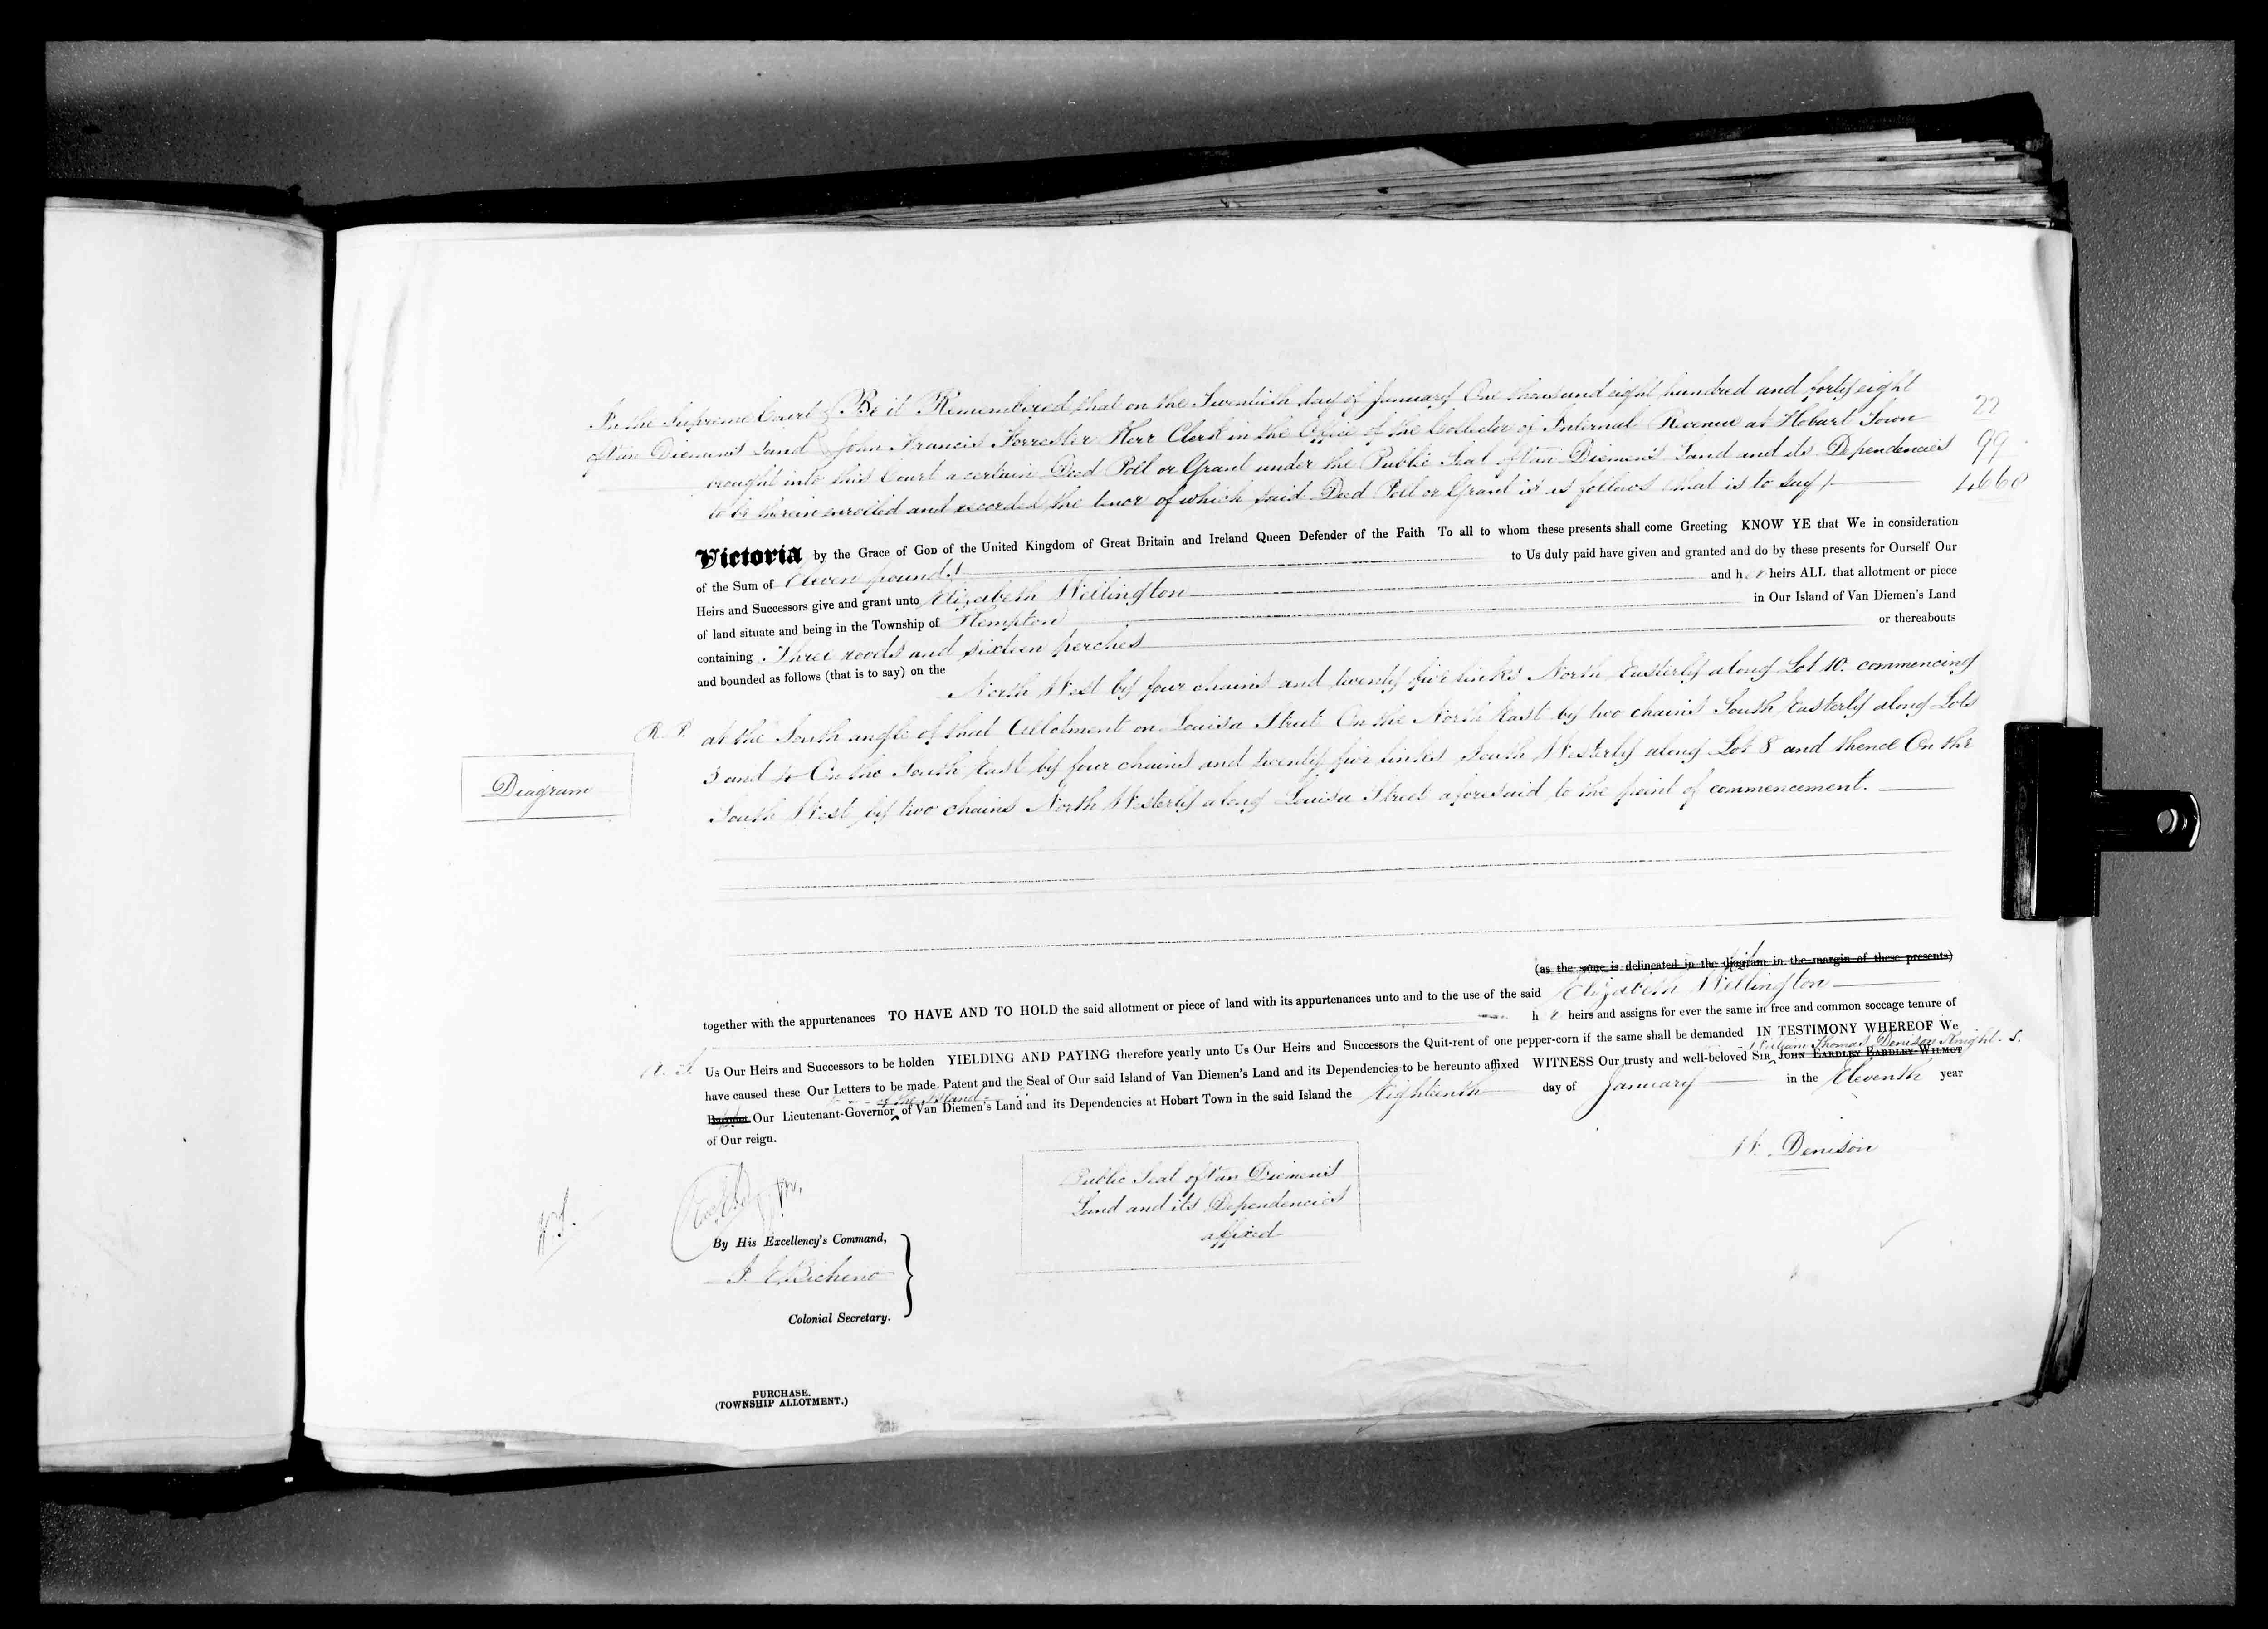 In the Supreme Court } Be it Remembered that on the Twentieth day of January One thousand eight hundred and forty eight
of Van Diemen's Land } John Francis Forrester Kerr Clerk in the Office of the Collector of Internal Revenue at Hobart Town
brought into this Court a certain Deed Poll or Grant under the Public Seal of Van Diemen's Land and its Dependencies
to be therein enrolled and recorded the tenor of which said Deed Poll or Grant is as follows (that is to say)
22
99
4660
Victoria by the Grace of God of the United Kingdom of Great Britain and Ireland Queen Defender of the Faith To all to whom these presents shall come Greeting KNOW YE that We in consideration
of the Sum of Eleven pounds to Us duly paid have given and granted and do by these presents for Ourself Our
Heirs and Successors give and grant unto Elizabeth Wellington and her heirs ALL that allotment or piece
of land situate and being in the Township of Kempton in Our Island of Van Diemen's Land
containing Three roods and sixteen perches or thereabouts
and bounded as follows (that is to say) on the
North West by four chains and twenty five links North Easterly along Lot 10. commencing
R. P. at the South angle of that Allotment on Louisa Street On the North East by two chains South Easterly along Lots
3 and 4 On the South East by four chains and twenty five links South Westerly along Lot 8 and thence On the
South West by two chains North Westerly along Louisa Street aforesaid to the point of commencement.
Diagram
(as the same is delineated in the diagram in the margin of these presents)
together with the appurtenances TO HAVE AND TO HOLD the said allotment or piece of land with its appurtenances unto and to the use of the said Elizabeth Wellington
her heirs and assigns for ever the same in free and common soccage tenure of
Us Our Heirs and Successors to be holden YIELDING AND PAYING therefore yearly unto Us Our Heirs and Successors the Quit-rent of one pepper-corn if the same shall be demanded IN TESTIMONY WHEREOF We
William Thomas Denison Knight
have caused these Our Letters to be made Patent and the Seal of Our said Island of Van Diemen's Land and its Dependencies to be hereunto affixed WITNESS Our trusty and well-beloved SIR JOHN EARDLEY EARDLEY-WILMOT
of the Island
Baronet Our Lieutenant-Governor of Van Diemen's Land and its Dependencies at Hobart Town in the said Island the Eighteenth day of January in the Eleventh year
of Our reign.
W. Denison
Public Seal of Van Diemen's
Land and its Dependencies
affixed
By His Excellency's Command,
J. E. Bicheno
Colonial Secretary.
PURCHASE.
(TOWNSHIP ALLOTMENT.)